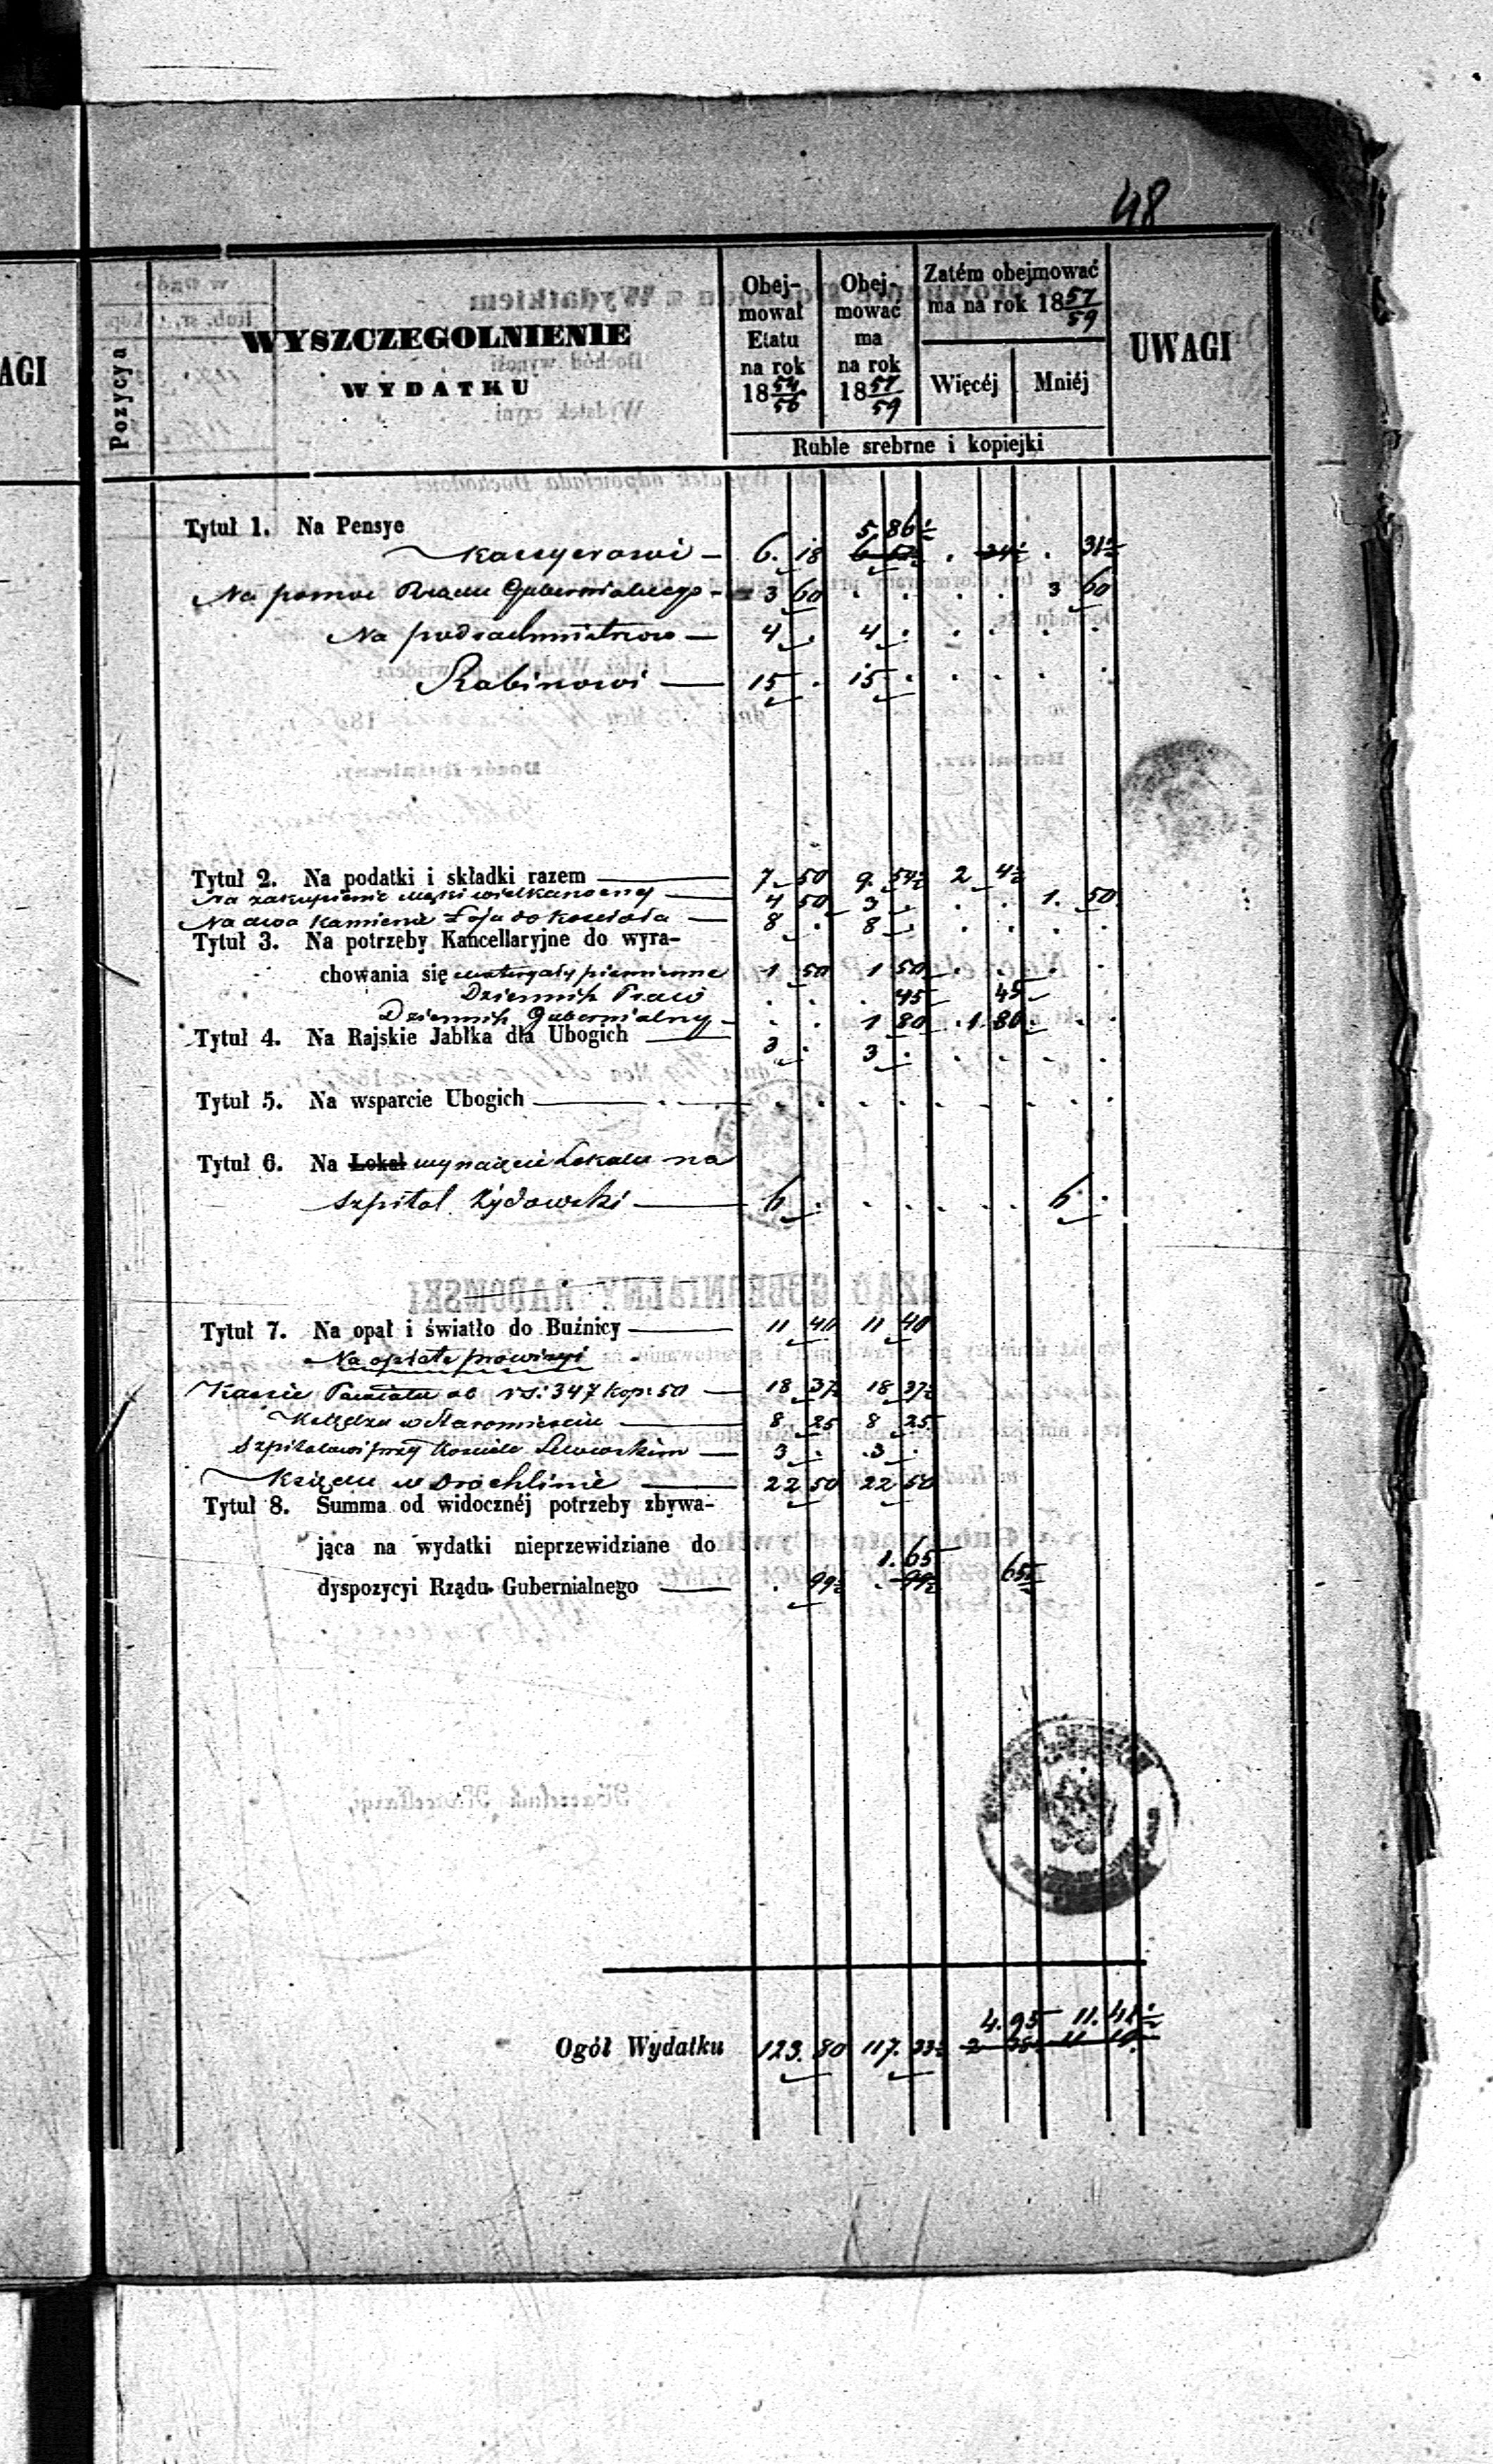 48
AGI
Pozycya
WYSZCZEGOLNIENIE
WYDATKU
Obej-
mował
Etatu
na rok
18 54/56
Obej-
mować
ma
na rok
18 57/59
Zatém obejmować
ma na rok 18 57/59
Więcéj
Mniéj
UWAGI
Ruble srebrne i kopiejki
Tytuł 1. Na Pensye
5. 86½
Kassyerowi — 6. 18 . . 31½
Na pomoc Rządu Gubernialnego - 3 60 . . . . 3 60
Na podrachmistrzow — 4 . 4 . . . . .
Rabinowi — 15 . 15 . . . . .
Tytuł 2. Na podatki i składki razem — 7 50 9. 54½ 2 4½
Na zakupienie mąki wielkanocney — 4 50 3 . . . 1. 50
Na dwa Kamienie Łoju do Kościoła — 8 . 8 . . . . .
Tytuł 3. Na potrzeby Kancellaryjne do wyra-
chowania się materyały piśmienne 1 50 1 50 . . . .
Dziennik Praw . . . 45 45
Dziennik Gubernialny — . . 1 80 . 1. 80 . .
Tytuł 4. Na Rajskie Jabłka dla Ubogich — 3 . 3 . . . . .
Tytuł 5. Na wsparcie Ubogich — . . . . . . . .
Tytuł 6. Na Lokal wynajęcie Lokalu na
Szpital Żydowski — 6 . . . . . 6 .
Tytuł 7. Na opał i światło do Buźnicy — 11 40 11 40
Na opłatę prowizyi
Kassie Powiatu od rs: 347 kop: 50 — 18 37½ 18 37½
Księdzu w Staromieściu — 8 25 8 25
Szpitalowi przy Kościele Lelowskim — 3 . 3 .
Księdzu w Drochlinie — 22 50 22 50
Tytuł 8. Summa od widocznéj potrzeby zbywa-
jąca na wydatki nieprzewidziane do
1. 65
dyspozycyi Rządu Gubernialnego — . 99½ . 99½ 65½
4. 95 11. 41½
Ogół Wydatku 123. 80 117. 33½